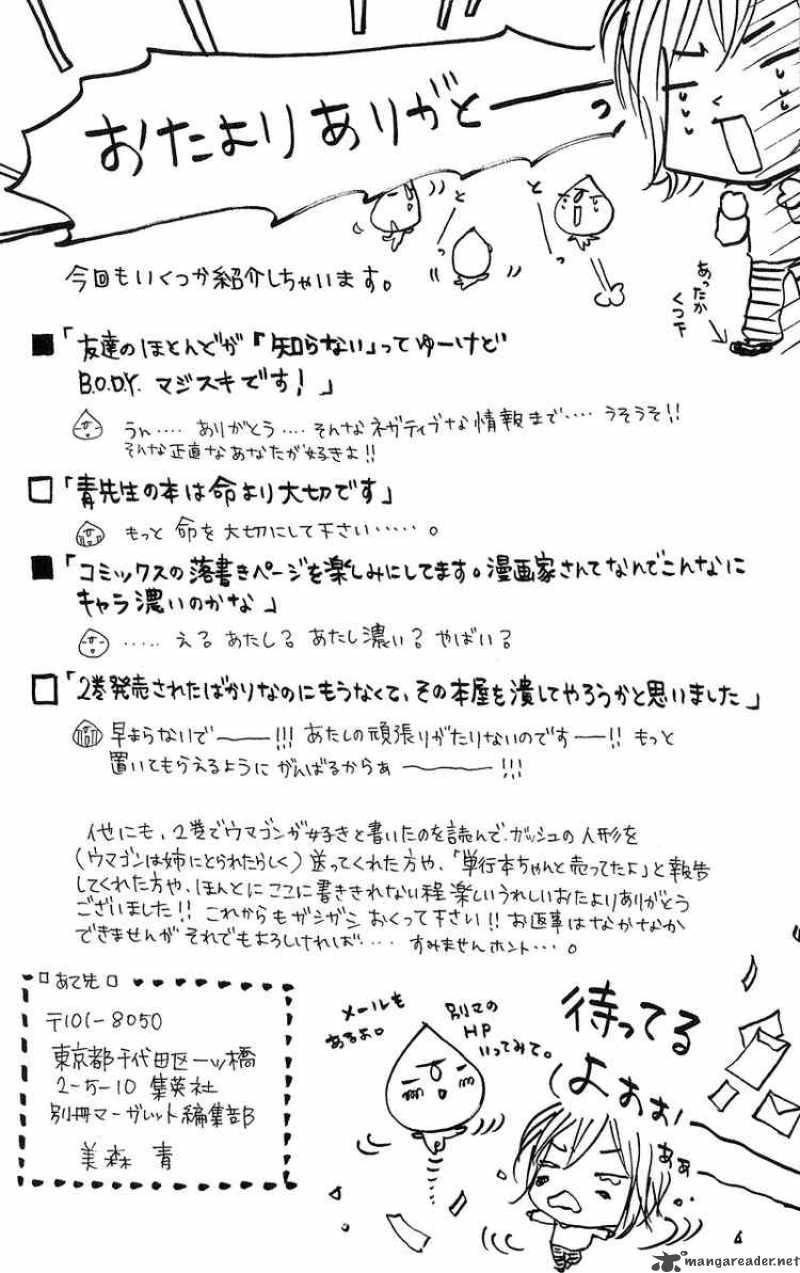 おたよりありがとーーっ
と
と
っ
あったか
くつ下
今回もいくつか紹介しちゃいます。
■「友達のほとんどが『知らない」ってゆーけど
B.O.D.Y. マジスキです！」
うん‥‥ ありがとう‥‥ そんなネガティブな情報まで‥‥ うそうそ!!
そんな正直なあなたが好きよ!!
□「青先生の本は命より大切です」
もっと 命を大切にして下さい‥‥‥。
■「コミックスの落書きページを楽しみにしてます。漫画家さんてなんでこんなに
キャラ濃いのかな」
‥‥‥ え? あたし? あたし濃い? やばい?
□「2巻発売されたばかりなのにもうなくて、その本屋を潰してやろうかと思いました」
早まらないで――!!! あたしの頑張りがたりないのです―!! もっと
置いてもらえるように がんばるからぁ ――!!!
他にも、2巻でウマゴンが好きと書いたのを読んで、ガッシュの人形を
(ウマゴンは姉にとられたらしく) 送ってくれた方や、「単行本ちゃんと売ってたよ」と報告
してくれた方や、ほんとにここに書ききれない程楽しいうれしいおたよりありがとう
ございました!! これからもガシガシ おくって下さい!! お返事はなかなか
できませんが それでもよろしければ‥‥ すみませんホント‥‥。
□あて先□
〒101-8050
東京都千代田区一ッ橋
2-5-10 集英社
別冊マーガレット編集部
美森 青
メールも
あるよ。
別マの
HP
いってみて。
待ってる
よぉぉ
ぁぁ
mangareader.net